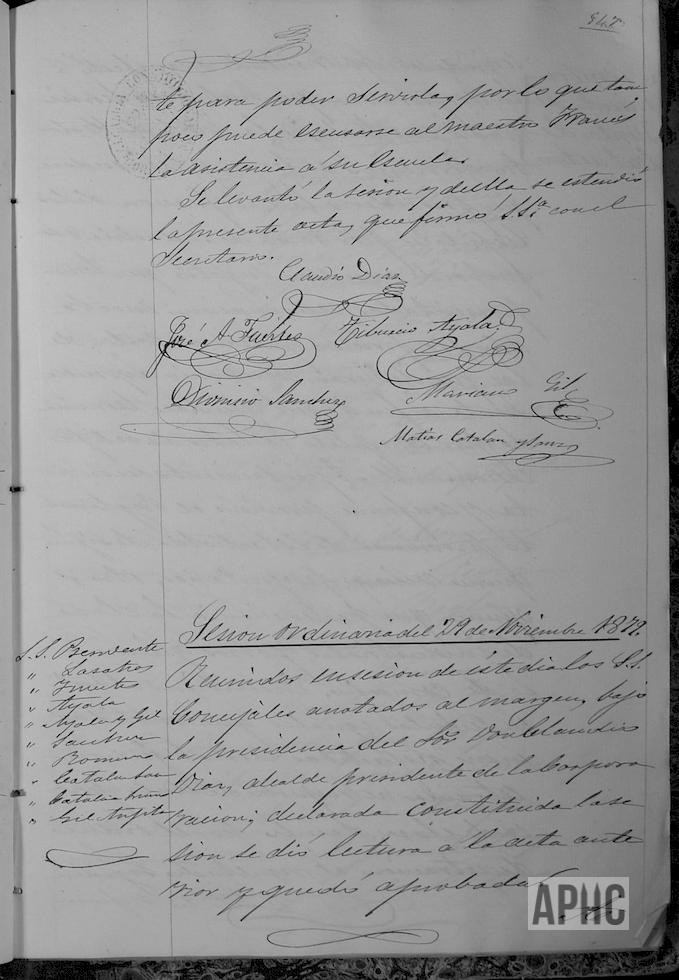 847
te para poder servirla, por lo que tam
poco puede escusarse al maestro Francés
la asistencia á su Escuela.
Se levantó la sesion y de ella se estendió
la presente acta, que firmó S.Sª con el
Secretario.
Claudio Diaz
José A. Fuertes
Tiburcio Ayala
Dionisio Sanchez
Mariano Gil
Matias Catalan y Sanz
Sesion ordinaria del 29 de Noviembre 1879.
S.S. Presidente
" Lasatros
" Fuertes
" Ayala
" Ayala y Gil
" Sanchez
" Romero
" Catalan San
" Catalan
" Gil
Reunidos en sesion de éste dia los S.S.
Concejales anotados al margen, bajo
la presidencia del Sor Don Claudio
Diaz, alcalde presidente de la Corpora
racion; declarada constituida la se
sion se dió lectura á la acta ante
rior y quedó aprobada.
APHC